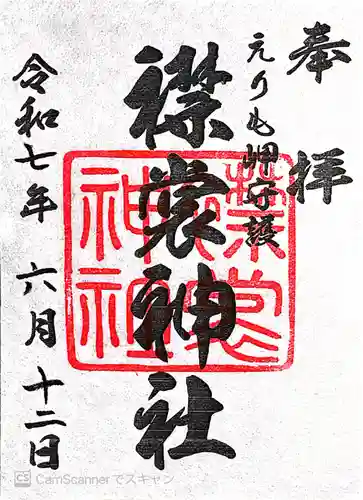 奉拝
えりも岬守護
襟裳神社
襟裳神社
令和七年 六月 十二日
CS CamScanner でスキャン